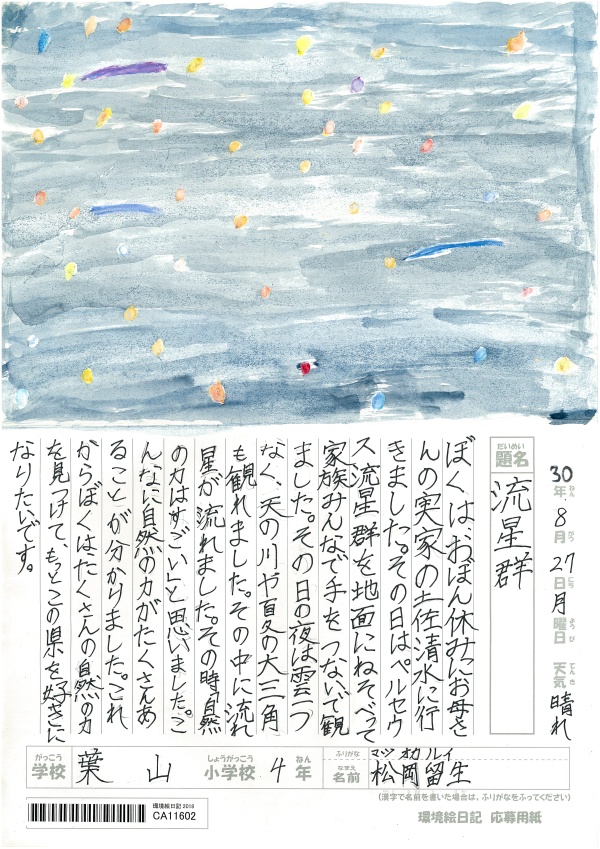 30年ねん 8月がつ 27日にち 月曜日ようび 天気てんき 晴れ
だいめい
題名
流星群
ぼくはおぼん休みにお母さ
んの実家の土佐清水に行
きました。その日はペルセウ
ス流星群を地面にねそべって
家族みんなで手をつないで観
ました。その日の夜は雲一つ
なく、天の川や夏の大三角
も観れました。その中に流れ
星が流れました。その時自然
の力はすごい」と思いました。こ
んなに自然の力がたくさんあ
ることが分かりました。これ
からぼくはたくさんの自然の力
を見つけて、もっとこの県を好きに
なりたいです。
がっこう
学校
葉山
しょうがっこう
小学校
4
ねん
年
ふりがな
マツオカルイ
なまえ
名前
松岡留生
(漢字で名前を書いた場合は、ふりがなをふってください)
環境絵日記 2018
CA11602
環境絵日記 応募用紙